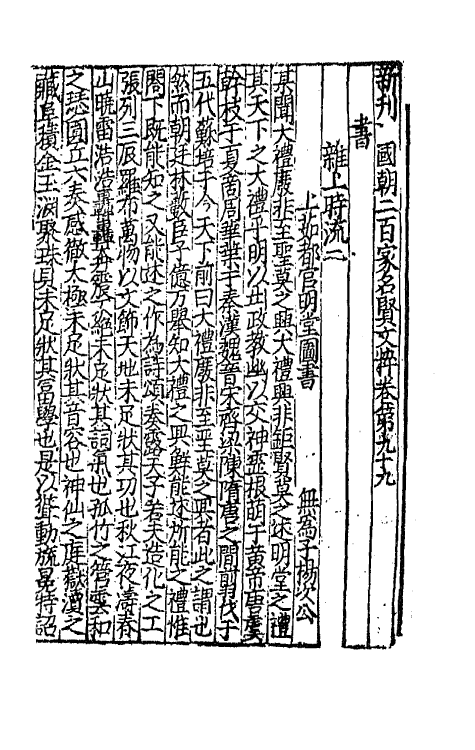 新刊國朝二百家名賢文粹卷第九十九
書
雜上時流二
上如都官明堂圖書　無爲子楊次公
某聞大禮廢非至聖莫之興大禮興非鉅賢莫之述明堂之禮
其天下之大禮乎明以出政教幽以交神靈根明于黃帝唐虞
幹枝于夏商周華華于秦漢魏晉宋齊梁陳隋唐之間翦伐于
五代蘇培于今天下前曰大禮廢非至聖莫之興者此之謂也
然而朝廷林藪臣子億万舉知大禮之興鮮能述所能之禮惟
閣下既能知之又能述之作為詩頌奏露天子若夫造化之工
張列三辰羅布萬物以文飾天地未足狀其功也秋江夜濤春
山曉雷浩浩轟轟奔震乎絕未足狀其詞氣也孤竹之管雲和
之瑟圜丘六奏感徹大極未足狀其音容也神仙之庭嶽瀆之
藏阜積金玉淵聚珠貝未足狀其富學也是以聳動旒冕特詔